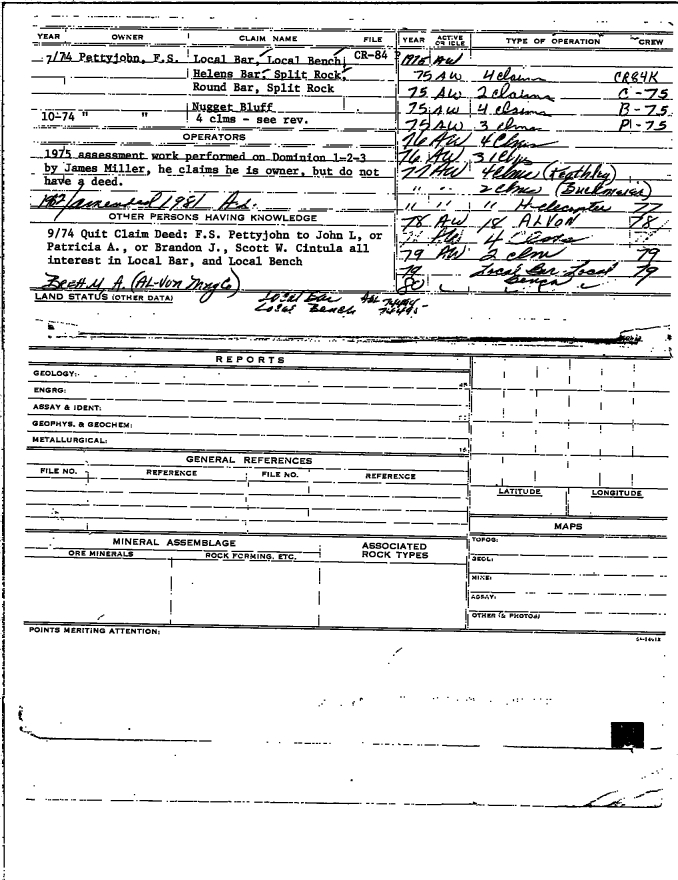 YEAR OWNER CLAIM NAME FILE YEAR ACTIVE OR IDLE TYPE OF OPERATION CREW
7/74 Pettyjohn, F.S. Local Bar, Local Bench CR-84 1975 AW
Helens Bar, Split Rock 75 AW 4 claims CR84K
Round Bar, Split Rock 75 AW 2 claims C-75
Nugget Bluff 75 AW 4 claims B-75
10-74 " " 4 clms - see rev. 75 AW 3 clms P1-75
OPERATORS 76 AW 4 Clms
1975 assessment work performed on Dominion 1-2-3 76 AW 3 Clms
by James Miller, he claims he is owner, but do not 77 AW 4 clms (Keathley)
have a deed. " " 2 clms
amended 1981 " " " Helicopter 77
OTHER PERSONS HAVING KNOWLEDGE 78 AW 18 ALVON 78
9/74 Quit Claim Deed: F.S. Pettyjohn to John L, or 4 Clms
Patricia A., or Brandon J., Scott W. Cintula all 79 AW 2 clm 79
interest in Local Bar, and Local Bench 79 Local Bar Local Bench 79
M. A. (AL-Von Mng Co) 80
LAND STATUS (OTHER DATA) Local Bar
Local Bench
REPORTS
GEOLOGY:
ENGRG:
ASSAY & IDENT:
GEOPHYS. & GEOCHEM:
METALLURGICAL:
GENERAL REFERENCES
FILE NO. REFERENCE FILE NO. REFERENCE
LATITUDE LONGITUDE
MAPS
MINERAL ASSEMBLAGE ASSOCIATED ROCK TYPES
ORE MINERALS ROCK FORMING, ETC.
TOPOG:
GEOL:
MINE:
ASSAY:
OTHER (& PHOTOS)
POINTS MERITING ATTENTION: